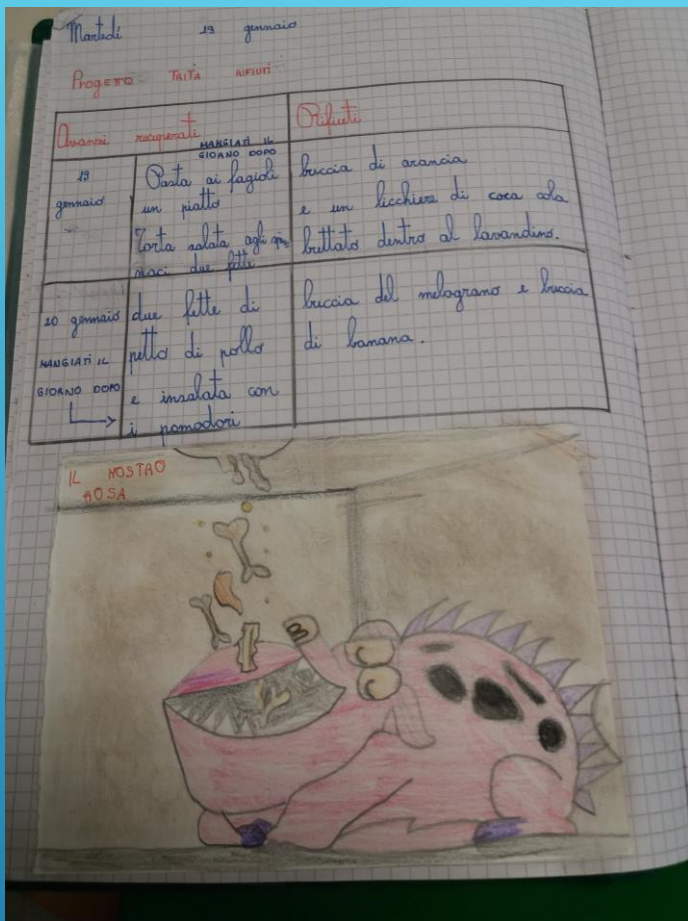 Martedì 19 gennaio
Progetto TRITA RIFIUTI
Avanzi recuperati
MANGIATI IL
GIORNO DOPO
Rifiuti
19
gennaio
Pasta ai fagioli
un piatto
Torta salata agli spi
naci due fette
buccia di arancia
e un bicchiere di coca cola
buttato dentro al lavandino.
20 gennaio
MANGIATI IL
GIORNO DOPO
due fette di
petto di pollo
e insalata con
i pomodori
buccia del melograno e buccia
di banana.
IL MOSTRO
ROSA